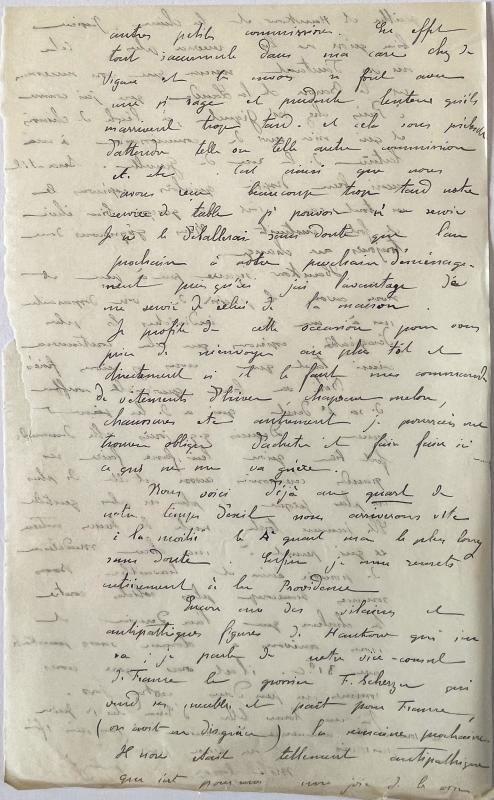 autres petits commissions. En effet
tout s'accumule dans ma caisse chez de
Vigan et tu envois a forcé avec
une si sage et prudente lenteur qu'ils
m'arrivent trop tard. et cela sous prétexte
d'attendre telle ou telle autre commission
et. etc. C'est ainsi que nous
avons reçu beaucoup trop tard notre
service de table pr pouvoir s'en servir
Je ne le déballerai sans doute que l'an
prochain à notre prochain déménage-
ment puisqu'ici j'ai l'avantage de
me servir de celui de la maison.
Je profite de cette occasion pour vous
prier de m'envoyer au plus tôt et
directement si il le faut mes commandes
de vêtements d'hiver, chapeau melon,
chaussures etc autrement je pourrais me
trouver obligé d'acheter et faire faire ici
ce qui ne me va guère.
Nous voici déjà au quart de
notre temps d'exil nous arriverons vite
à la moitié le 4e quart sera le plus long
sans doute. Enfin je m'en remets
entièrement à la Providence
Encore une des vilaines et
antipathiques figures de Hankow qui s'en
va : je parle de notre vice-consul
de France le grossier F. Scherzer qui
vend ses meubles et part pour France,
(on croit en disgrâce) la semaine prochaine
Il nous était tellement antipathique
que c'est pour nous une joie de le